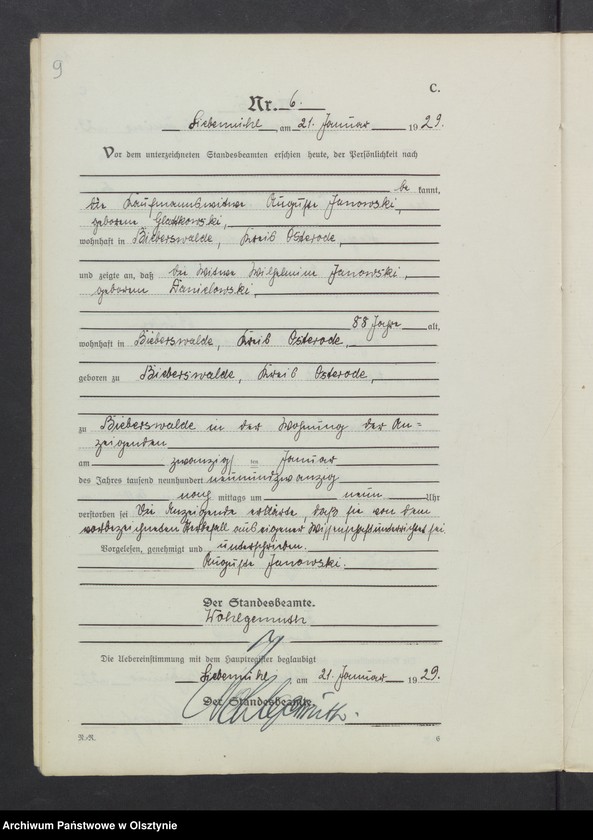 9
C.
Nr. 6.
Liebemühl, am 21. Januar 1929.
Vor dem unterzeichneten Standesbeamten erschien heute, der Persönlichkeit nach
be kannt,
die Kaufmannswitwe Auguste Janowski,
geborene Gladkowski,
wohnhaft in Bieberswalde, Kreis Osterode,
und zeigte an, daß die Witwe Wilhelmine Janowski,
geborene Danielowski,
88 Jahre alt,
wohnhaft in Bieberswalde, Kreis Osterode,
geboren zu Bieberswalde, Kreis Osterode,
zu Bieberswalde in der Wohnung der An=
zeigenden
am zwanzig ten Januar
des Jahres tausend neunhundert neunundzwanzig
nach mittags um neun Uhr
verstorben sei. Die Anzeigende erklärte, daß sie von dem
vorbezeichneten Sterbefall aus eigener Wissenschaft unterrichtet sei.
Vorgelesen, genehmigt und unterschrieben.
Auguste Janowski.
Der Standesbeamte.
Wohlgemuth
Die Uebereinstimmung mit dem Hauptregister beglaubigt
Liebemühl, am 21. Januar 1929.
Der Standesbeamte.
Wohlgemuth.
R./R.
6
Archiwum Państwowe w Olsztynie